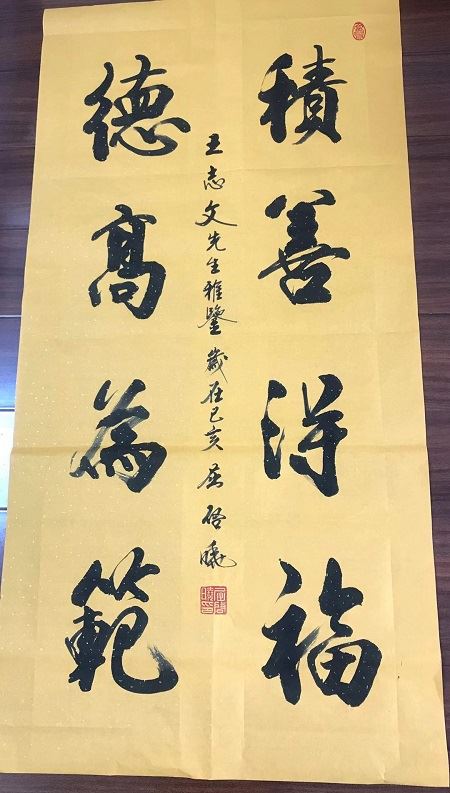 積善得福
德高為範
王志文先生雅鑒 歲在己亥 屈啓曉